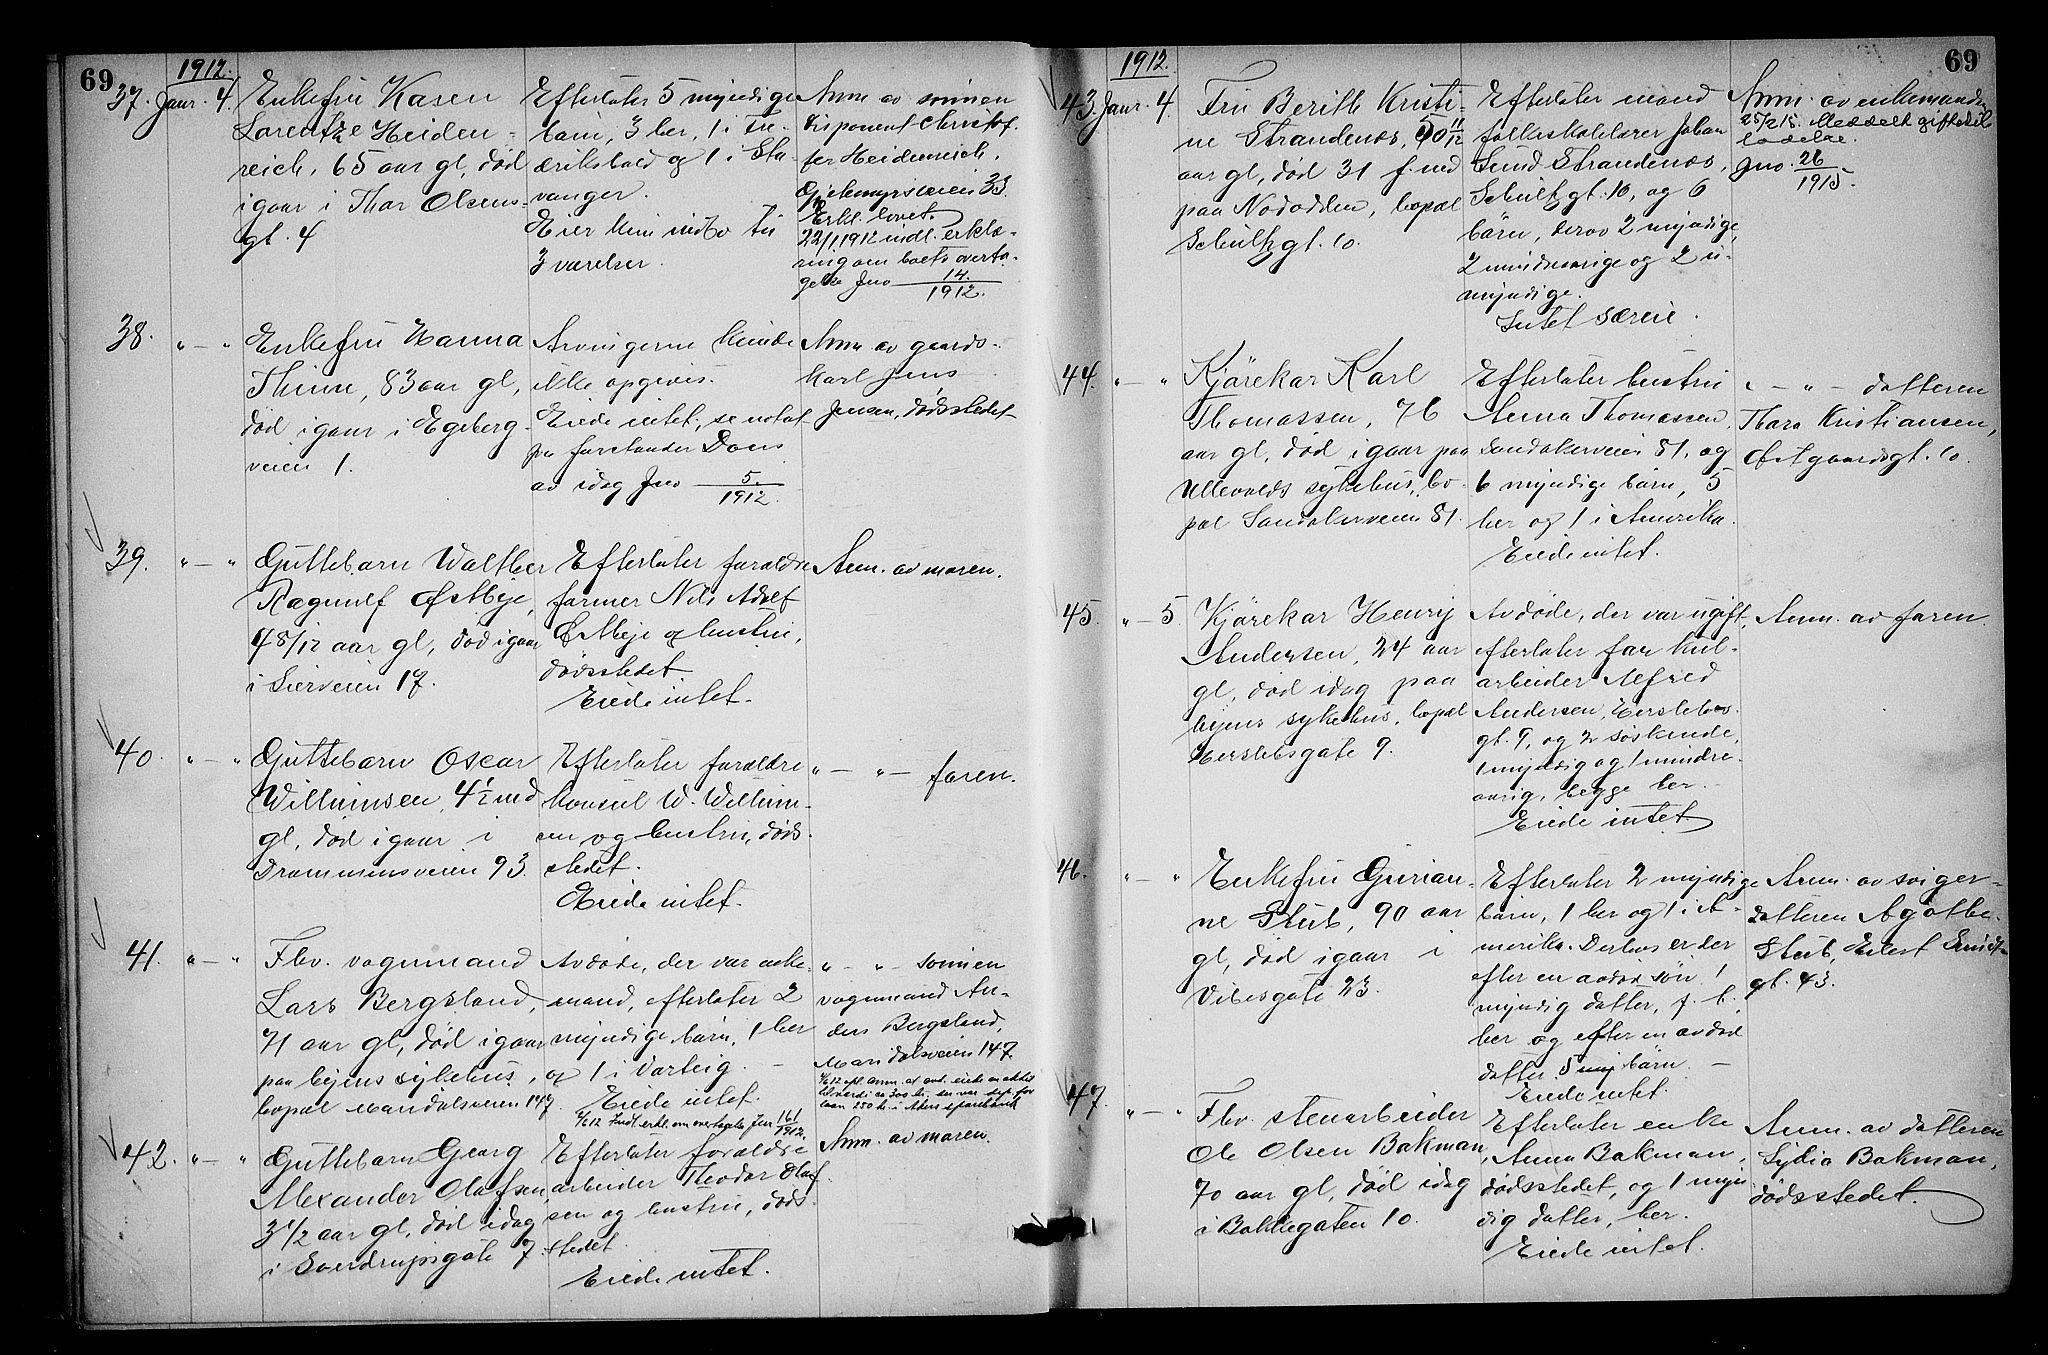 69
1912.
37. Janr. 4.
Enkefru Karen
Lorentze Heiden-
reich, 65 aar gl, död
igaar i Thor Olsens-
gt. 4
Efterlater 5 myndige
barn, 3 her, 1 i Fre-
drikshald og 1 i Sta-
vanger.
Eier kun indbo til
3 værelser.
Anm. av sönnen
disponent Christof-
fer Heidenreich,
Gjetemyrsveien 33.
Erkl. lovet.
22/1 1912 indl. erklæ-
ring om boets overta-
gelse Jno 14./1912.
38. " — "
Enkefru Hanna
Thime, 83 aar gl,
död igaar i Egeberg-
veien 1.
Arvingerne kunde
ikke opgives.
Eiede intet, se notat
fra forstander Dons
av idag Jno 5./1912.
Anm av gaards-
karl Jens
Jensen, dödsstedet
39. " — "
Guttebarn Walther
Ragnulf Østbye,
4 8/12 aar gl, död igaar
i Sierveien 17.
Efterlater forældre
former Nils Adolf
Østbye og hustru,
dödsstedet.
Eiede intet.
Anm. av moren.
40. " — "
Guttebarn Oscar
Willumsen, 4 1/2 md
gl, död igaar i
Drammensveien 93.
Efterlater forældre
konsul W. Willum-
sen og hustru, döds-
stedet.
Eiede intet.
" — " — faren.
41. " — "
Fhv. vognmand
Lars Bergsland,
71 aar gl, död igaar
paa byens sykehus,
bopæl Maridalsveien 147.
Avdöde, der var enke-
mand, efterlater 2
myndige barn, 1 her
og 1 i Varteig.
Eiede intet.
Indl. erkl. om overtagelse Jno 161/1912.
" — " — sönnen
vognmand An-
ders Bergsland,
Maridalsveien 147
42. " — "
Guttebarn Georg
Alexander Olafsen,
3 1/2 aar gl, död idag
i Sondrupsgate 7.
Efterlater forældre
arbeider Theodor Olaf-
sen og hustru, döds-
stedet.
Eiede intet.
Anm. av moren.
69
1912.
43. Janr. 4.
Fru Berith Kristi-
ne Strandenæs, 50 11/12
aar gl, död 31 f. md
paa Notodden, bopæl
Schultzgt. 10.
Efterlater mand
folkeskolelærer Johan
Lund Strandenæs,
Schultzgt. 10, og 6
börn, derav 2 myndige,
2 mindreaarige og 2 u-
myndige.
Intet særeie.
Anm. av enkemanden
25/2 15. Meddelt giftetil-
ladelse.
Jno. 26/1915.
44. " — "
Kjörekar Karl
Thomassen, 76
aar gl, död igaar paa
Ullevolds sykehus, bo-
pæl Sandakerveien 81.
Efterlater hustru
Anna Thomassen,
Sandakerveien 81, og
6 myndige barn, 5
her og 1 i Amerika.
Eiede intet.
" — " — datteren
Thora Kristiansen,
Østgaardsgt. 10.
45. " — 5.
Kjörekar Henry
Andersen, 24 aar
gl, död idag paa
byens sykehus, bopæl
Herslebsgate 9.
Avdöde, der var ugift,
efterlater far kul-
arbeider Alfred
Andersen, Herslebs-
gt. 9, og 2 söskende,
1 myndig og 1 mindre-
aarig, begge her.
Eiede intet.
Anm. av faren.
46. " — "
Enkefru Gurian-
ne Stub, 90 aar
gl, död igaar i
Vibesgate 23.
Efterlater 2 myndige
barn, 1 her og 1 i A-
merika. Derhos er der
efter en avdöd sön 1
myndig datter, f. t.
her og efter en avdöd
datter 5 myn börn. —
Eiede intet
Anm. av sviger-
datteren Agathe
Stub, Eilert Sundt-
gt. 43.
47. " — "
Fhv. stenarbeider
Ole Olsen Bakman,
70 aar gl, död idag
i Bakkegaten 10.
Efterlater enke
Anna Bakman,
dödsstedet, og 1 myn-
dig datter, her.
Eiede intet.
Anm. av datteren
Lydia Bakman,
dödsstedet.